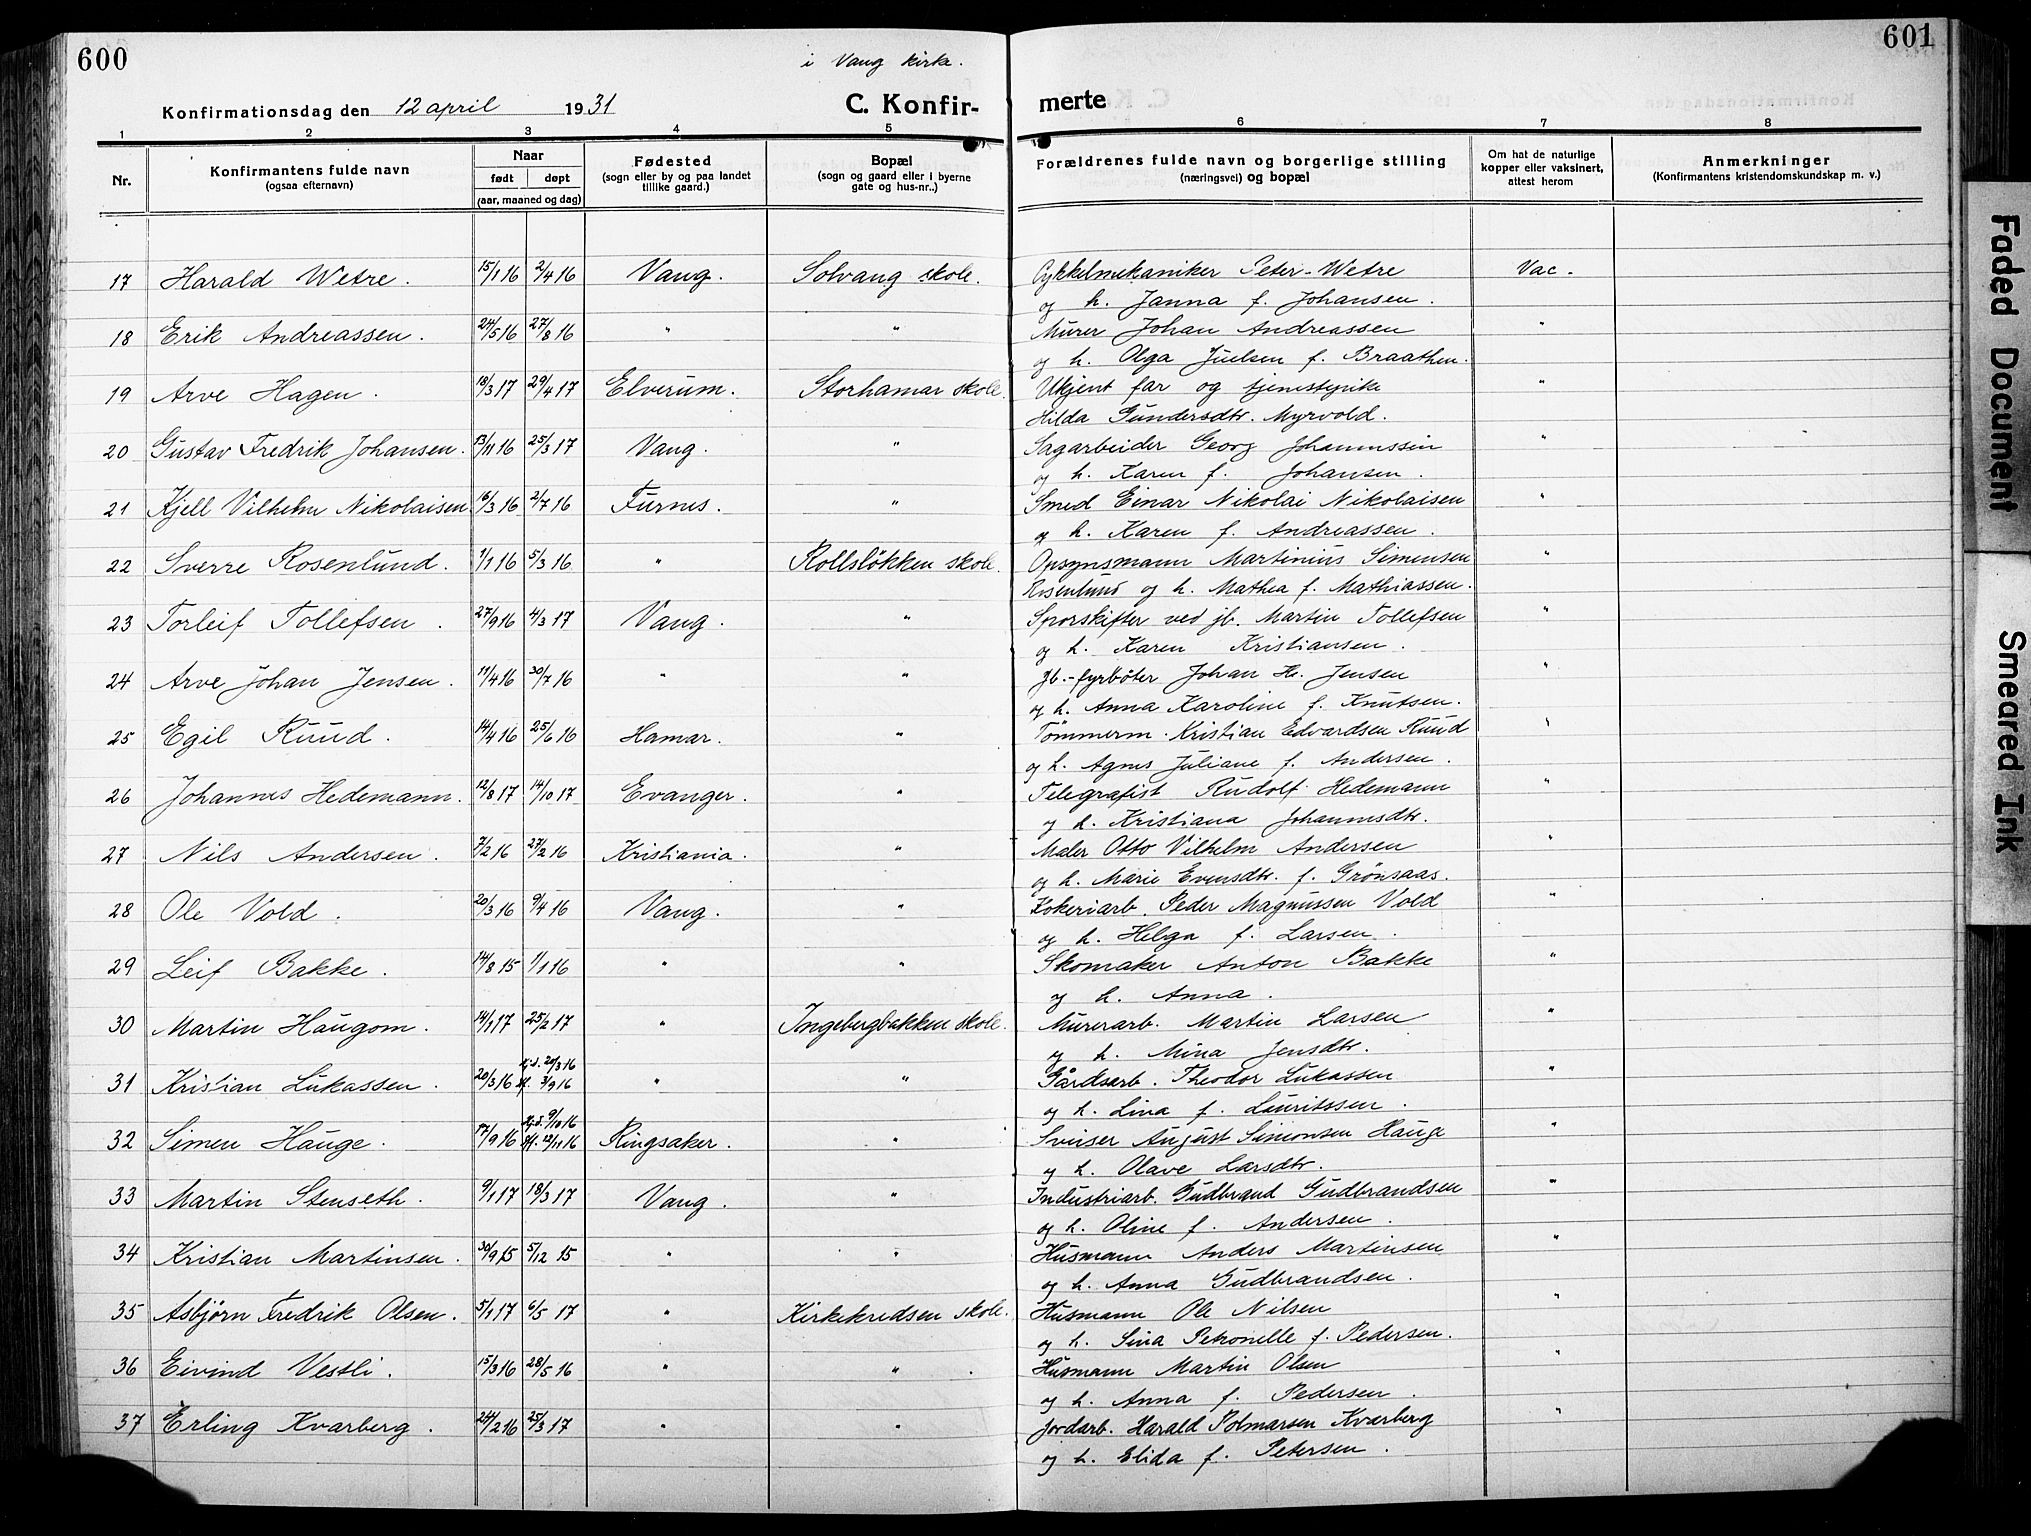 600
i Vang kirke.
601
Konfirmationsdag den 12 april 1931
C. Konfir-
merte
1 2 3 4 5 6 7 8
Nr.
Konfirmantens fulde navn
(ogsaa efternavn)
Naar
født døpt
(aar, maaned og dag)
Fødested
(sogn eller by og paa landet
tillike gaard.)
Bopæl
(sogn og gaard eller i byerne
gate og hus-nr..)
Forældrenes fulde navn og borgerlige stilling
(næringsvei) og bopæl
Om hat de naturlige
kopper eller vaksinert,
attest herom
Anmerkninger
(Konfirmantens kristendomskundskap m. v.)
17 Harald Wetre. 15/1 16 2/4 16 Vang. Solvang skole. Cykkelmekaniker Peter Wetre Vac.
og h. Janna f. Johansen.
18 Erik Andreassen. 24/5 16 27/8 16 " " Murer Johan Andreassen "
og h. Olga Juelsen f. Braathen.
19 Arve Hagen. 18/3 17 29/4 17 Elverum. Storhamar skole. Ukjent far og tjenestepike "
Hilda Gundersdtr. Myrvold.
20 Gustav Fredrik Johansen. 13/11 16 25/3 17 Vang. " Sagarbeider Georg Johannssen "
og h. Karen f. Johansen.
21 Kjell Vilhelm Nikolaisen 16/3 16 2/7 16 Furnes. " Smed Einar Nikolai Nikolaisen "
og h. Karen f. Andreassen.
22 Sverre Rosenlund. 1/1 16 5/3 16 " Rollsløkken skole. Opsynsmann Martinius Simensen "
Rosenlund og h. Mathea f. Mathiassen.
23 Torleif Tollefsen. 27/9 16 4/3 17 Vang. " Sporskifter ved jb. Martin Tollefsen "
og h. Karen Kristiansen.
24 Arve Johan Jensen. 11/4 16 30/7 16 " " Jb.-fyrbøter Johan H. Jensen "
og h. Anna Karoline f. Knutsen.
25 Egil Ruud. 14/4 16 25/6 16 Hamar. " Tømmerm. Kristian Edvardsen Ruud "
og h. Agnes Juliane f. Andersen.
26 Johannes Hedemann. 12/8 17 14/10 17 Evanger. " Telegrafist Rudolf Hedemann "
og h. Kristiana Johannesdtr.
27 Nils Andersen. 7/2 16 27/2 16 Kristiania. " Maler Otto Vilhelm Andersen "
og h. Marie Evensdtr. f. Grönsaas.
28 Ole Vold. 20/3 16 9/4 16 Vang. " Kokeriarb. Peder Magnussen Vold "
og h. Helga f. Larsen.
29 Leif Bakke. 14/8 15 1/1 16 " " Skomaker Anton Bakke "
og h. Anna.
30 Martin Haugom. 14/1 17 25/2 17 " Ingebergbakken skole. Murerarb. Martin Larsen "
og h. Mina Jensdtr.
31 Kristian Lukassen. 20/3 16 Hj.d. 20/3 16 st. 3/9 16 " " Gårdsarb. Theodor Lukassen "
og h. Lina f. Lauritssen.
32 Simen Hauge. 17/9 16 Hj.d. 9/10 16 st. 12/11 16 Ringsaker. " Sveiser August Simonsen Hauge "
og h. Olave Larsdtr.
33 Martin Stenseth. 9/1 17 18/3 17 Vang. " Industriarb. Gudbrand Gudbrandsen "
og h. Oline f. Andersen.
34 Kristian Martinsen. 30/9 15 5/12 15 " " Husmann Anders Martinsen "
og h. Anna Gudbrandsen.
35 Asbjørn Fredrik Olsen. 5/1 17 6/5 17 " Kirkekredsen skole. Husmann Ole Nilsen "
og h. Sina Petronelle f. Pedersen.
36 Eivind Vestli. 15/3 16 28/5 16 " " Husmann Martin Olsen "
og h. Anna f. Pedersen.
37 Erling Kvarberg. 24/2 16 25/3 17 " " Jordarb. Harald Polmarsen Kværberg "
og h. Elida f. Petersen.
Faded Document
Smeared Ink